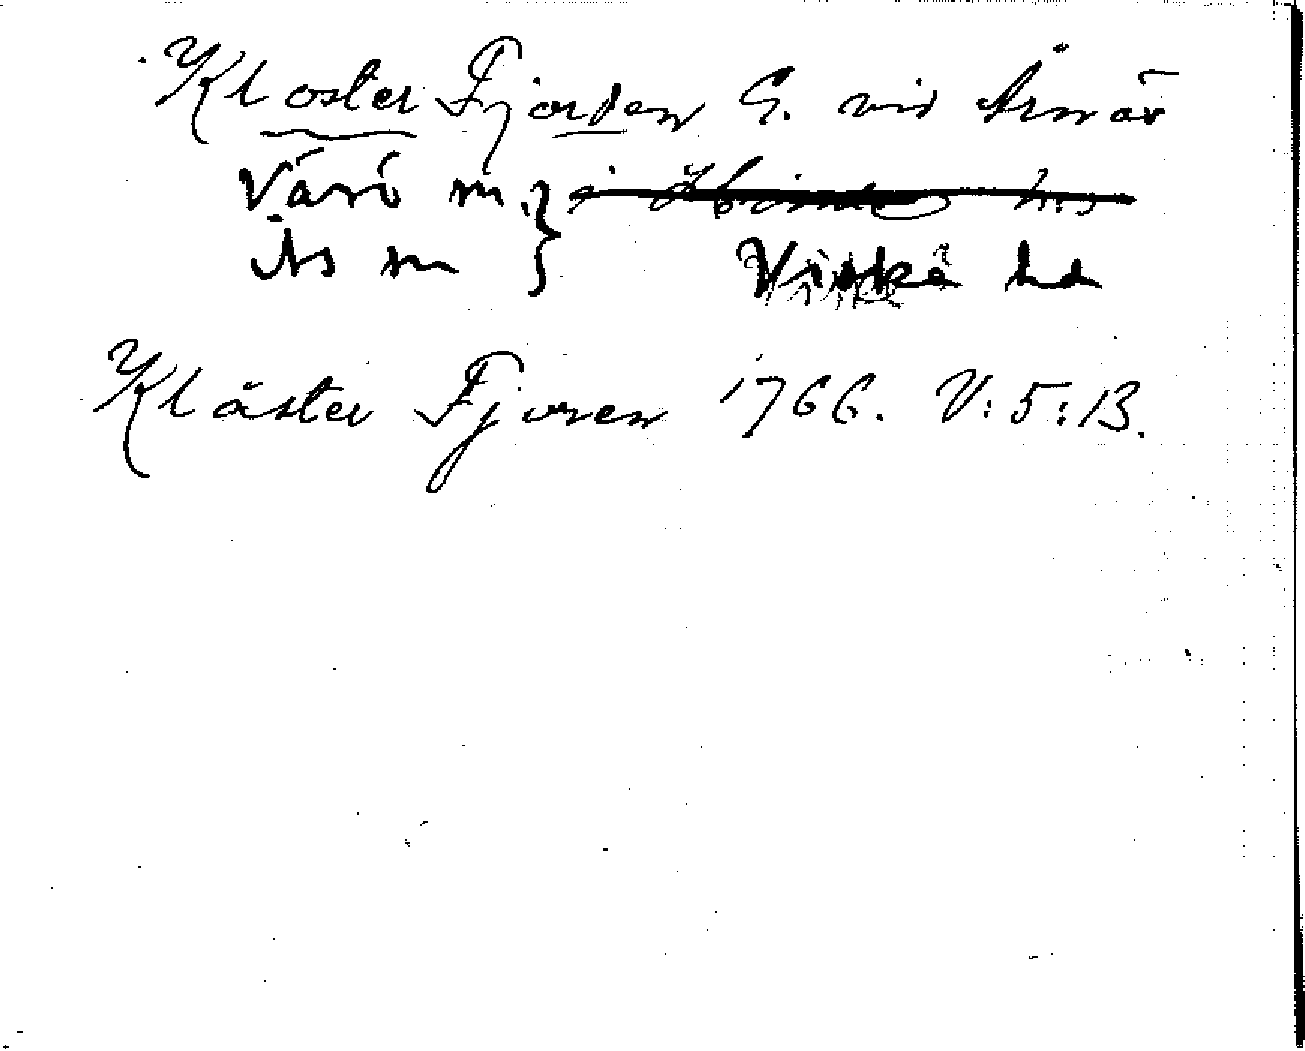 Kloster Fjorden G. vid Årnäs
Värö sn.
Ås sn } Viske hd
Klåster Fjoren 1766. V:5:13.